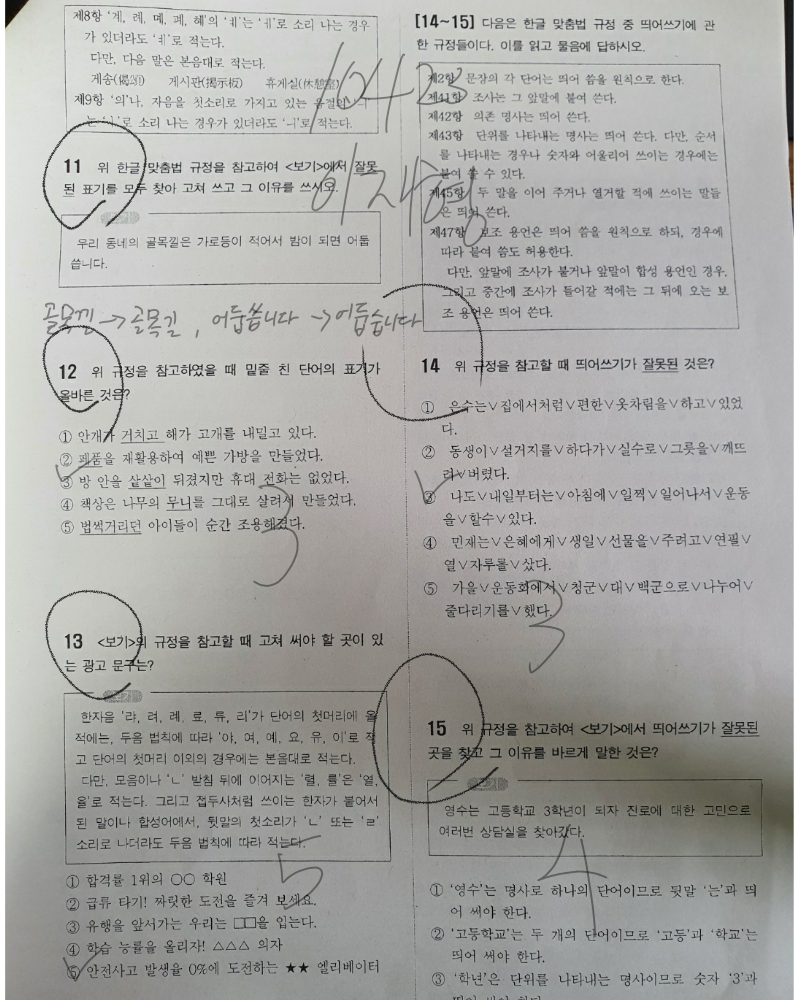 제8항 '계, 례, 몌, 폐, 혜'의 'ㅖ'는 'ㅔ'로 소리 나는 경우
가 있더라도 'ㅖ'로 적는다.
다만, 다음 말은 본음대로 적는다.
게송(偈頌) 게시판(揭示板) 휴게실(休憩室)
제9항 '의'나, 자음을 첫소리로 가지고 있는 음절의 'ㅢ'
는 'ㅣ'로 소리 나는 경우가 있더라도 'ㅢ'로 적는다.
11 위 한글 맞춤법 규정을 참고하여 <보기>에서 잘못
된 표기를 모두 찾아 고쳐 쓰고 그 이유를 쓰시오.
우리 동네의 골목낄은 가로등이 적어서 밤이 되면 어둡
씁니다.
골목낄 → 골목길, 어둡씁니다 → 어둡습니다
12 위 규정을 참고하였을 때 밑줄 친 단어의 표기가
올바른 것은?
① 안개가 거치고 해가 고개를 내밀고 있다.
② 폐품을 재활용하여 예쁜 가방을 만들었다.
③ 방 안을 샅샅이 뒤졌지만 휴대 전화는 없었다.
④ 책상은 나무의 무니를 그대로 살려서 만들었다.
⑤ 법썩거리던 아이들이 순간 조용해졌다.
3
13 <보기>의 규정을 참고할 때 고쳐 써야 할 곳이 있
는 광고 문구는?
한자음 '랴, 려, 례, 료, 류, 리'가 단어의 첫머리에 올
적에는, 두음 법칙에 따라 '야, 여, 예, 요, 유, 이'로 적
고 단어의 첫머리 이외의 경우에는 본음대로 적는다.
다만, 모음이나 'ㄴ' 받침 뒤에 이어지는 '렬, 률'은 '열,
율'로 적는다. 그리고 접두사처럼 쓰이는 한자가 붙어서
된 말이나 합성어에서, 뒷말의 첫소리가 'ㄴ' 또는 'ㄹ'
소리로 나더라도 두음 법칙에 따라 적는다.
5
① 합격률 1위의 ○○ 학원
② 급류 타기! 짜릿한 도전을 즐겨 보세요.
③ 유행을 앞서가는 우리는 □□을 입는다.
④ 학습 능률을 올리자! △△△ 의자
⑤ 안전사고 발생율 0%에 도전하는 ★★ 엘리베이터
[14~15] 다음은 한글 맞춤법 규정 중 띄어쓰기에 관
한 규정들이다. 이를 읽고 물음에 답하시오.
제2항 문장의 각 단어는 띄어 씀을 원칙으로 한다.
제41항 조사는 그 앞말에 붙여 쓴다.
제42항 의존 명사는 띄어 쓴다.
제43항 단위를 나타내는 명사는 띄어 쓴다. 다만, 순서
를 나타내는 경우나 숫자와 어울리어 쓰이는 경우에는
붙여 쓸 수 있다.
제45항 두 말을 이어 주거나 열거할 적에 쓰이는 말들
은 띄어 쓴다.
제47항 보조 용언은 띄어 씀을 원칙으로 하되, 경우에
따라 붙여 씀도 허용한다.
다만, 앞말에 조사가 붙거나 앞말이 합성 용언인 경우,
그리고 중간에 조사가 들어갈 적에는 그 뒤에 오는 보
조 용언은 띄어 쓴다.
14 위 규정을 참고할 때 띄어쓰기가 잘못된 것은?
① 은수는∨집에서처럼∨편한∨옷차림을∨하고∨있었
다.
② 동생이∨설거지를∨하다가∨실수로∨그릇을∨깨뜨
려∨버렸다.
③ 나도∨내일부터는∨아침에∨일찍∨일어나서∨운동
을∨할수∨있다.
④ 민재는∨은혜에게∨생일∨선물을∨주려고∨연필∨
열∨자루를∨샀다.
⑤ 가을∨운동회에서∨청군∨대∨백군으로∨나누어∨
줄다리기를∨했다.
3
15 위 규정을 참고하여 <보기>에서 띄어쓰기가 잘못된
곳을 찾고 그 이유를 바르게 말한 것은?
영수는 고등학교 3학년이 되자 진로에 대한 고민으로
여러번 상담실을 찾아갔다.
4
① '영수'는 명사로 하나의 단어이므로 뒷말 '는'과 띄
어 써야 한다.
② '고등학교'는 두 개의 단어이므로 '고등'과 '학교'는
띄어 써야 한다.
③ '학년'은 단위를 나타내는 명사이므로 숫자 '3'과
띄어 써야 한다.